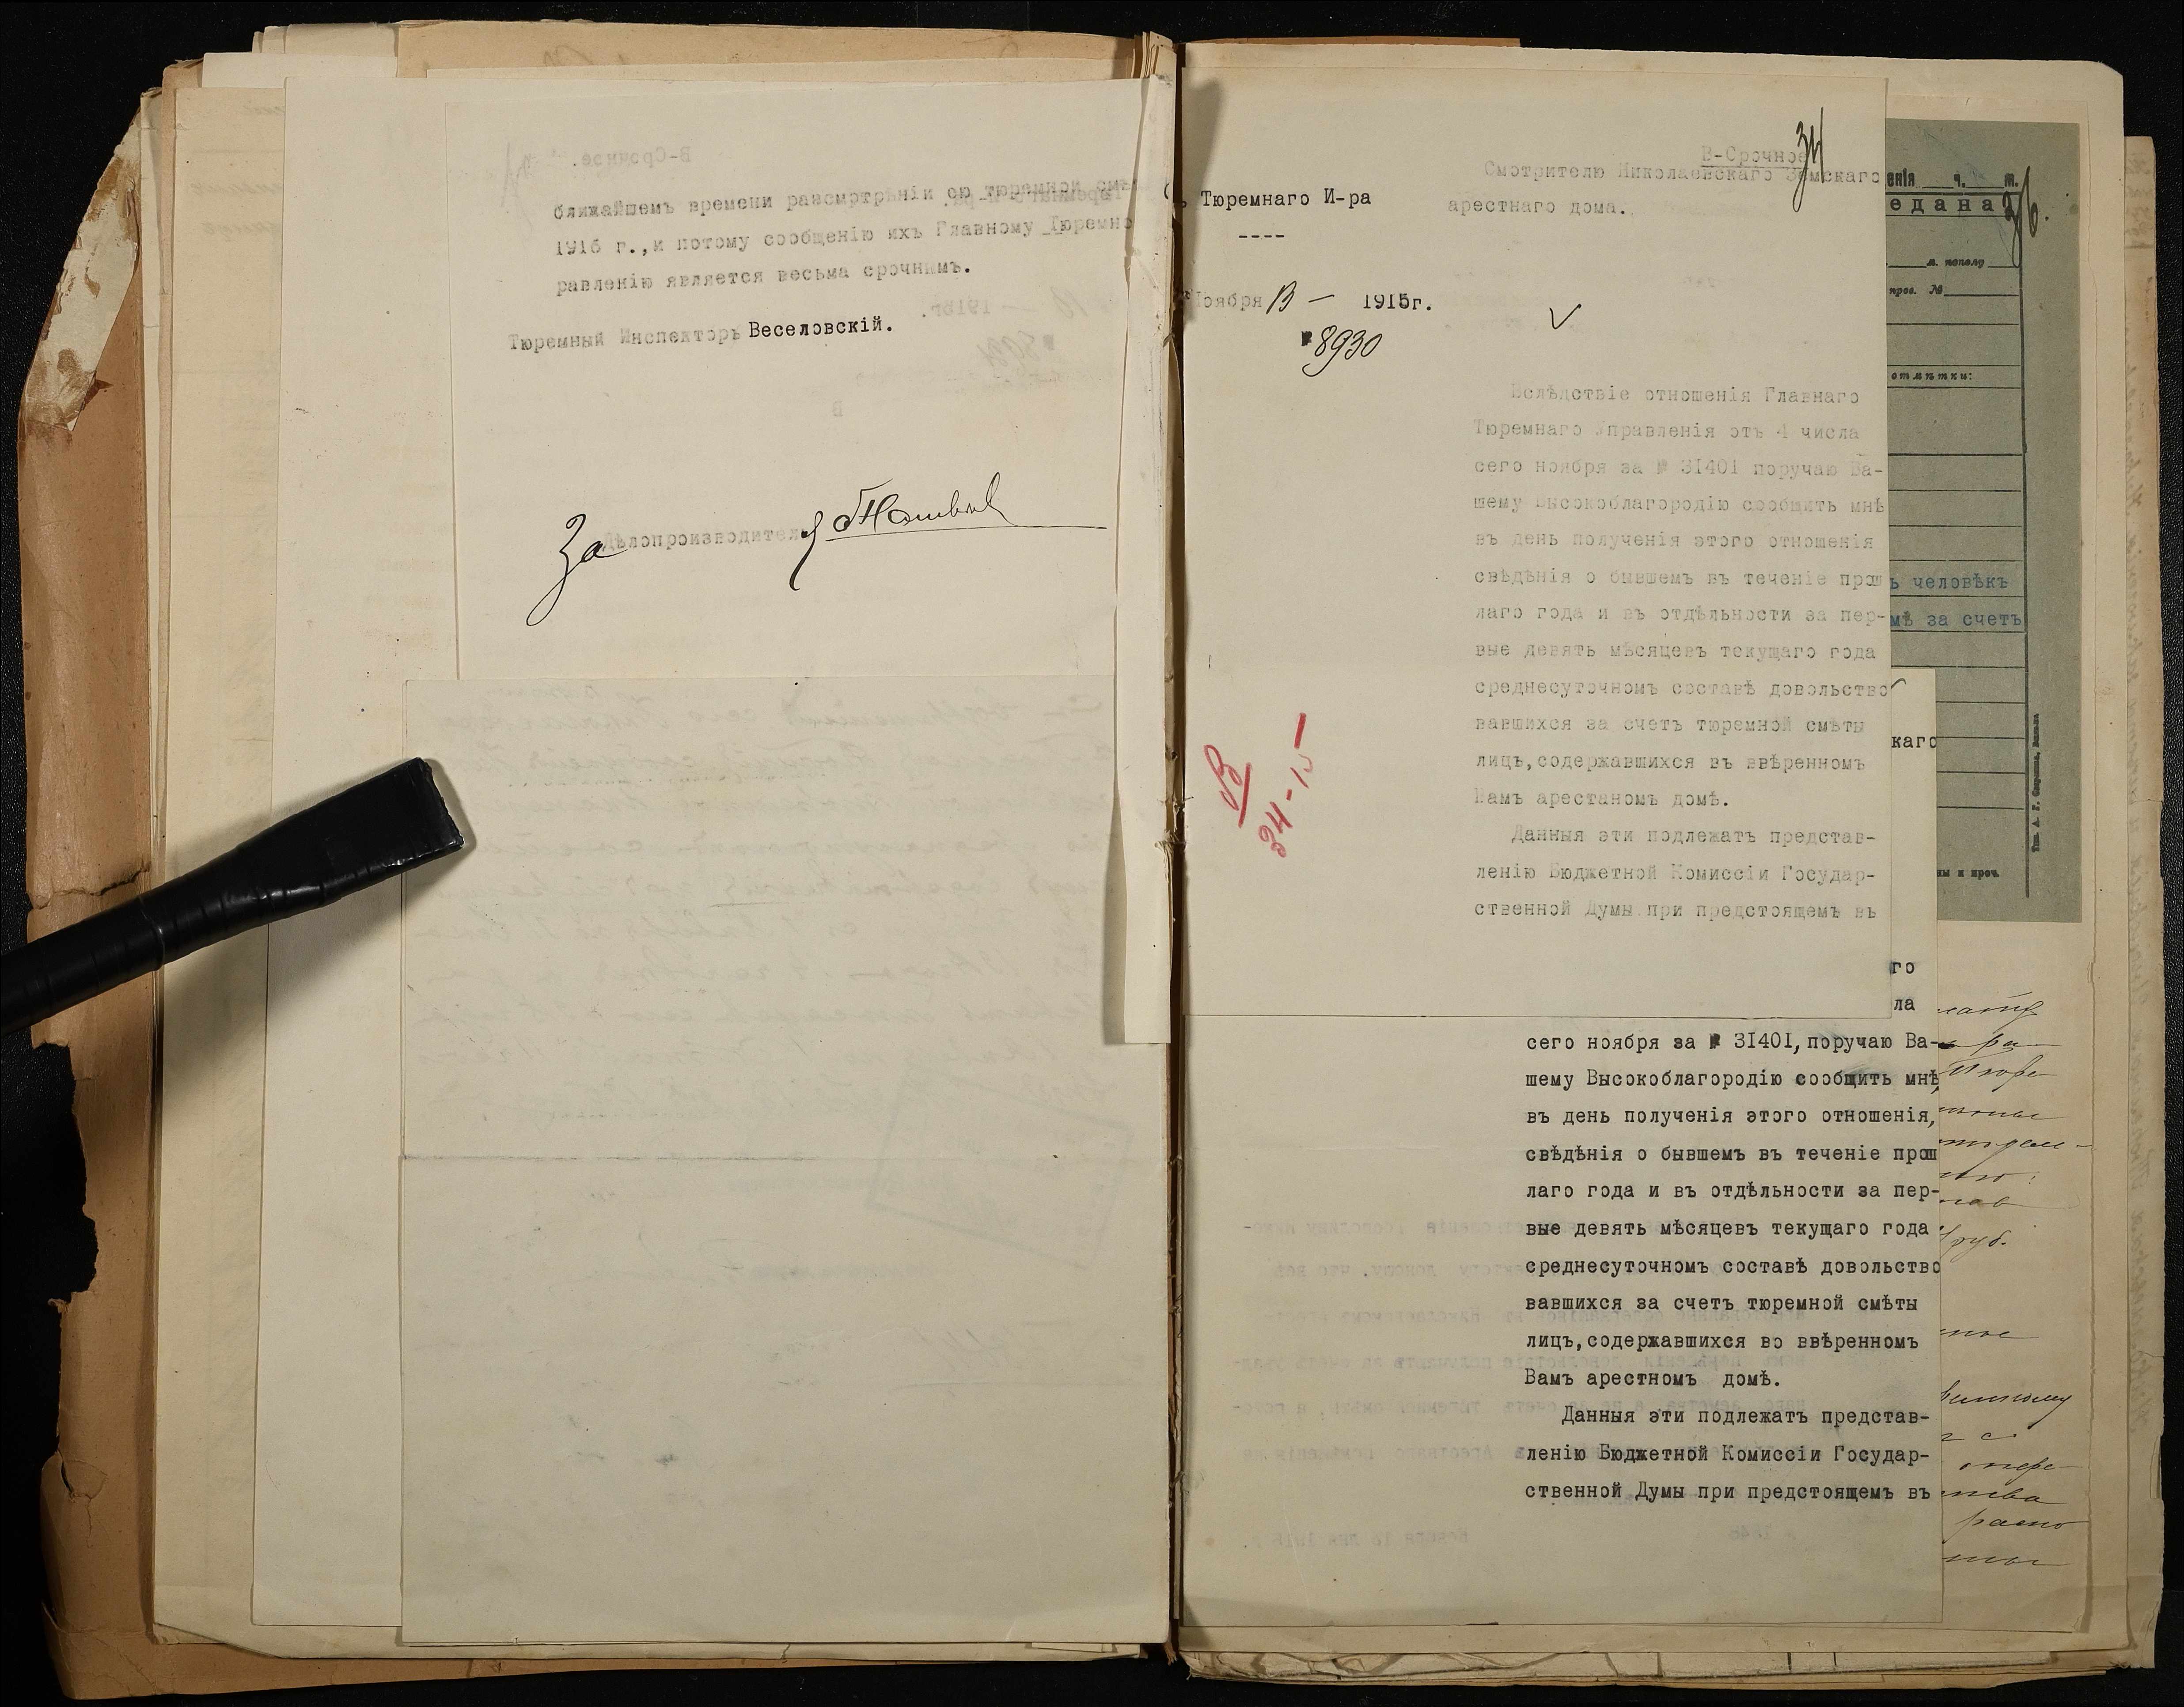 ближайшемъ времени разсмотрѣніи ею тюремной смѣ
1916 г.,и потому сообщенію ихъ Главному Тюремно
равленію является весьма срочнымъ.
Тюремный Инспекторъ Веселовскій.
За Дѣлопроизводителя
34
В-Срочное
Смотрителю Николаевскаго Земскаго
арестнаго дома.
Тюремнаго И-ра
----
Ноября 13 — 1915г.
№ 8930
Вслѣдствіе отношенія Главнаго
Тюремнаго Управленія отъ 4 числа
сего ноября за № 31401 поручаю Ва-
шему Высокоблагородію сообщить мнѣ
въ день полученія этого отношенія
свѣдѣнія о бывшемъ въ теченіе прош
лаго года и въ отдѣльности за пер-
вые девять мѣсяцевъ текущаго года
среднесуточномъ составѣ довольство
вавшихся за счетъ тюремной смѣты
лицъ,содержавшихся въ ввѣренномъ
Вамъ арестаномъ домѣ.
Данныя эти подлежатъ представ-
ленію Бюджетной Комиссіи Государ-
ственной Думы при предстоящемъ въ
34-15
каго
го
ла
сего ноября за № 31401,поручаю Ва-
шему Высокоблагородію сообщить мнѣ,
въ день полученія этого отношенія,
свѣдѣнія о бывшемъ въ теченіе прош
лаго года и въ отдѣльности за пер-
вые девять мѣсяцевъ текущаго года
среднесуточномъ составѣ довольство
вавшихся за счетъ тюремной смѣты
лицъ,содержавшихся во ввѣренномъ
Вамъ арестномъ домѣ.
Данныя эти подлежатъ представ-
ленію Бюджетной Комиссіи Государ-
ственной Думы при предстоящемъ въ
енія ч. м.
едана
36.
м. пополу
пров. №
отмѣтки:
ъ человѣкъ
мѣ за счетъ
ны и проч.
руб.